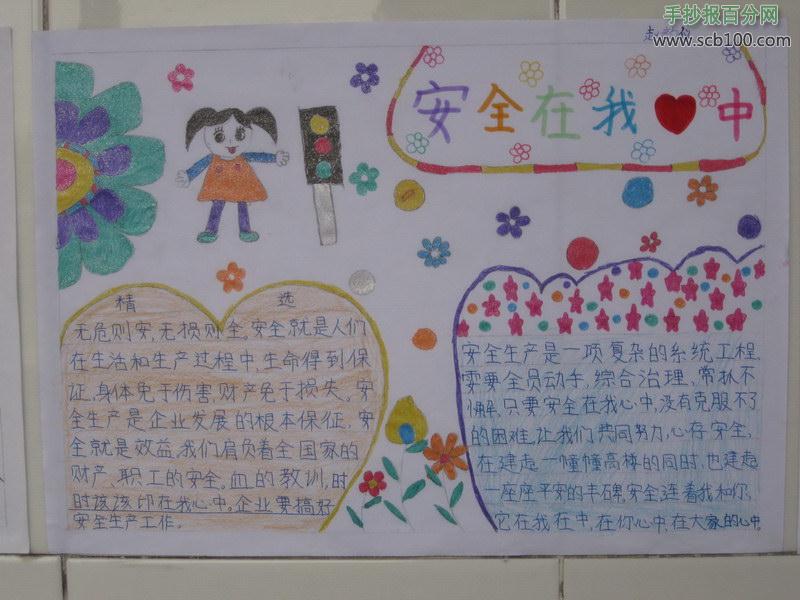 手抄报百分网
www.scb100.com
安全在我中
精 选
无危则安,无损则全。安全就是人们
在生活和生产过程中,生命得到保
证,身体免于伤害,财产免于损失。安
全生产是企业发展的根本保征,安
全就是效益,我们肩负着全国家的
财产、职工的安全,血的教训,时
时该该印在我心中。企业要搞好
安全生产工作。
安全生产是一项复杂的系统工程,
需要全员动手,综合治理、常抓不
懈,只要安全在我心中,没有克服不了
的困难,让我们共同努力,心存安全,
在建造一幢幢高楼的同时,也建造
一座座平安的丰碑,安全连着我和你,
它在我在中,在你心中,在大家的心中。